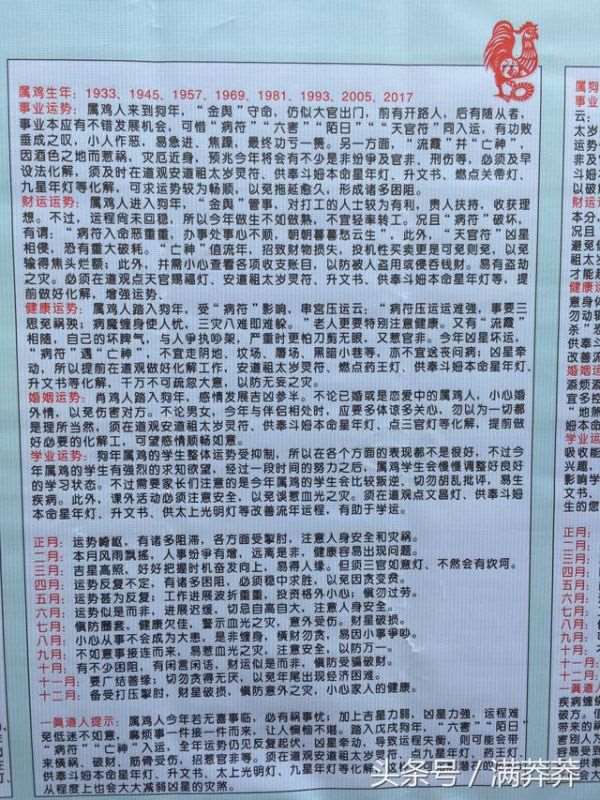 属鸡生年：1933、1945、1957、1969、1981、1993、2005、2017
事业运势：属鸡人来到狗年，“金舆”守命，仿似大官出门，前有开路人，后有随从者，
事业本应有不错发展机会，可惜“病符”“六害”“陌日”“天官符”同入运，有功败
垂成之叹，小人作恶、易急进、焦躁，最终功亏一篑。另一方面，“流霞”并“亡神”，
因酒色之地而惹祸，灾厄近身，预兆今年将会有不少是非纷争及官非、刑伤等，必须及早
设法化解，须及时在道观安道祖太岁灵符、供奉斗姆本命星年灯、升文书、燃点关帝灯、
九星年灯等化解，可求运势较为畅顺，以免拖延愈久，形成诸多困阻。
财运运势：属鸡人进入狗年，“金舆”管事，对打工的人士较为有利，贵人扶持，收获理
想。不过，运程尚未回稳，所以今年做生不如做熟，不宜轻率转工。况且“病符”破坏，
有谓：“病符入命恶重重，办事处事已不顺，朝朝暮暮愁云生”，此外，“天官符”凶星
相侵，恐有重大破耗。“亡神”值流年，招致财物损失，投机性买卖更是可免则免，以免
输得焦头烂额；此外，并需小心查看各项收支账目，以防被人盗用或侵吞钱财。易有盗劫
之灾。必须在道观点天官赐福灯、安道祖太岁灵符、升文书、供奉斗姆本命星年灯等，提
前做好化解，增强运势.
健康运势：属鸡人踏入狗年，受“病符”影响，串宫压运云：“病符压运运难强，事要三
思免祸殃；病魔缠身使人忧，三灾八难即难躲。”老人更要特别注意健康。又有“流霞”
相随，自己的坏脾气，与人争执吵架，严重时更怕刀剪无眼，又惹官非。今年凶星坏运，
“病符”遇“亡神”，不宜走阴地、坟场、屠场、黑暗小巷等，亦不宜送丧问病；凶星牵
动，所以提前在道观做好化解工作，安道祖太岁灵符、燃点药王灯、供奉斗姆本命星年灯、
升文书等化解，千万不可疏忽大意，以防无妄之灾。
婚姻运势：肖鸡人踏入狗年，感情发展吉凶参半。不论已婚或是恋爱中的属鸡人，小心婚
外情，以免伤害对方。不论男女，今年与伴侣相处时，应要多体谅多关心，勿以为一切都
是理所当然，须在道观安道祖太岁灵符、供奉斗姆本命星年灯、点三官灯等化解，提前做
好必要的化解工，可望感情顺畅如意。
学业运势：狗年属鸡的学生整体运势受抑制，所以在各个方面的表现都不是很好，不过今
年属鸡的学生有强烈的求知欲望，经过一段时间的努力之后，属鸡学生会慢慢调整好良好
的学习状态。不过需要家长们注意的是今年属鸡的学生会比较叛逆，切勿胡乱批评，易生
疾病。此外，课外活动必须注意安全，以免误惹血光之灾。须在道观点文昌灯、供奉斗姆
本命星年灯、升文书、供太上光明灯等改善流年运程，有助于学运。
正月：运势崎岖，有诸多阻滞，各方面受掣肘，注意人身安全和灾祸。
二月：本月风雨飘摇，人事纷争有增，远离是非，健康容易出现问题。
三月：吉星高照，好好把握时机奋发向上，易得人缘。但须三官如意灯、不然会有坎坷。
四月：运势反复不定，有诸多困阻，必须稳中求胜，以免因贪变贫。
五月：运势甚为反复；工作进展波折重重，投资格外小心；慎勿过劳。
六月：运势似是而非，进展迟缓，切忌自高自大，注意人身安全。
七月：慎防圈套。健康欠佳，警示血光之灾，意外受伤。财星破损。
八月：小心从事不会成为大患，是非缠身，横财勿贪，易因小事争吵。
九月：不如意事接连而来，易惹血光之灾，注意安全，以防万一。
十月：有不少困阻，有闲言闲语，财运似是而非，慎防受骗破财。
十一月：要广结善缘；切勿贪得无厌，以免年尾出现经济困难。
十二月：备受打压掣肘，财星破损，慎防意外之灾，小心家人的健康。
一真道人提示：属鸡人今年若无喜事临，必有祸事忧；加上吉星力弱，凶星力强，运程难
免低迷不如意，麻烦事一件接一件而来，让人懊恼不堪。踏入戊戌狗年，“六害”“陌日”
“病符”“亡神”入运，全年运势仍见反复起伏，凶星牵动，导致运程失衡，则可能会带
来横祸、破财，筋骨受伤、招惹官非等。须在道观安道祖太岁灵符、点九星年灯、药王灯、
供奉斗姆本命星年灯、升文书、太上光明灯、九星年灯等化解。
从程度上也会大大减弱凶星的灾煞。
头条号／满莽莽